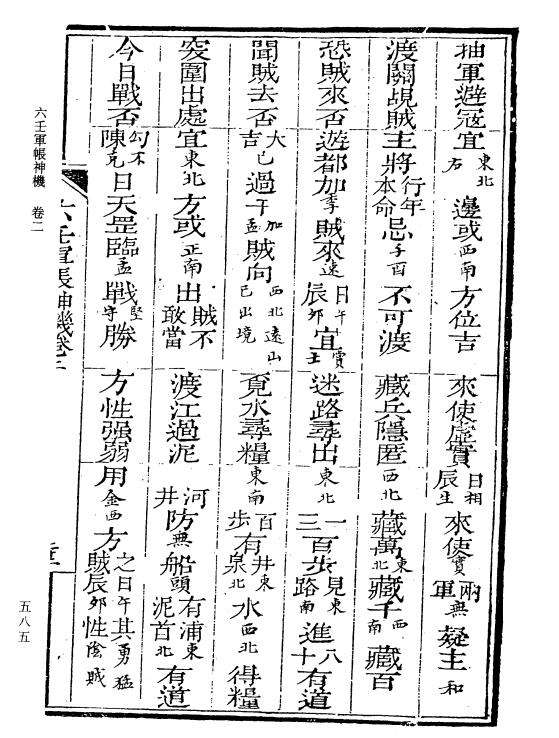 抽軍避寇宜東北右邊或西南方位吉　來使虛實日相辰生來使實兩軍無疑主和
渡關覘賊主將行年本命忌子酉不可渡　藏兵隱匿西北藏萬東北藏千西南藏百
恐賊來否遊都加季賊來速日午辰卯宜實主　迷路尋出東北一三百步見東路南進八十有道
聞賊去否大吉已過午加孟賊向西北遠山已出境　覓水尋糧東南百步有井東泉北水西北得糧
突圍出處宜東北方或正南出賊不敢當　渡江過泥河井防無船頭有浦東泥首北有道
今日戰否勾陳不克日天罡臨孟戰堅守勝　方性强弱用金西方之日午其勇猛賊辰卯性陰賊
六壬軍帳神機卷二
六壬軍帳神機　卷二
五八五